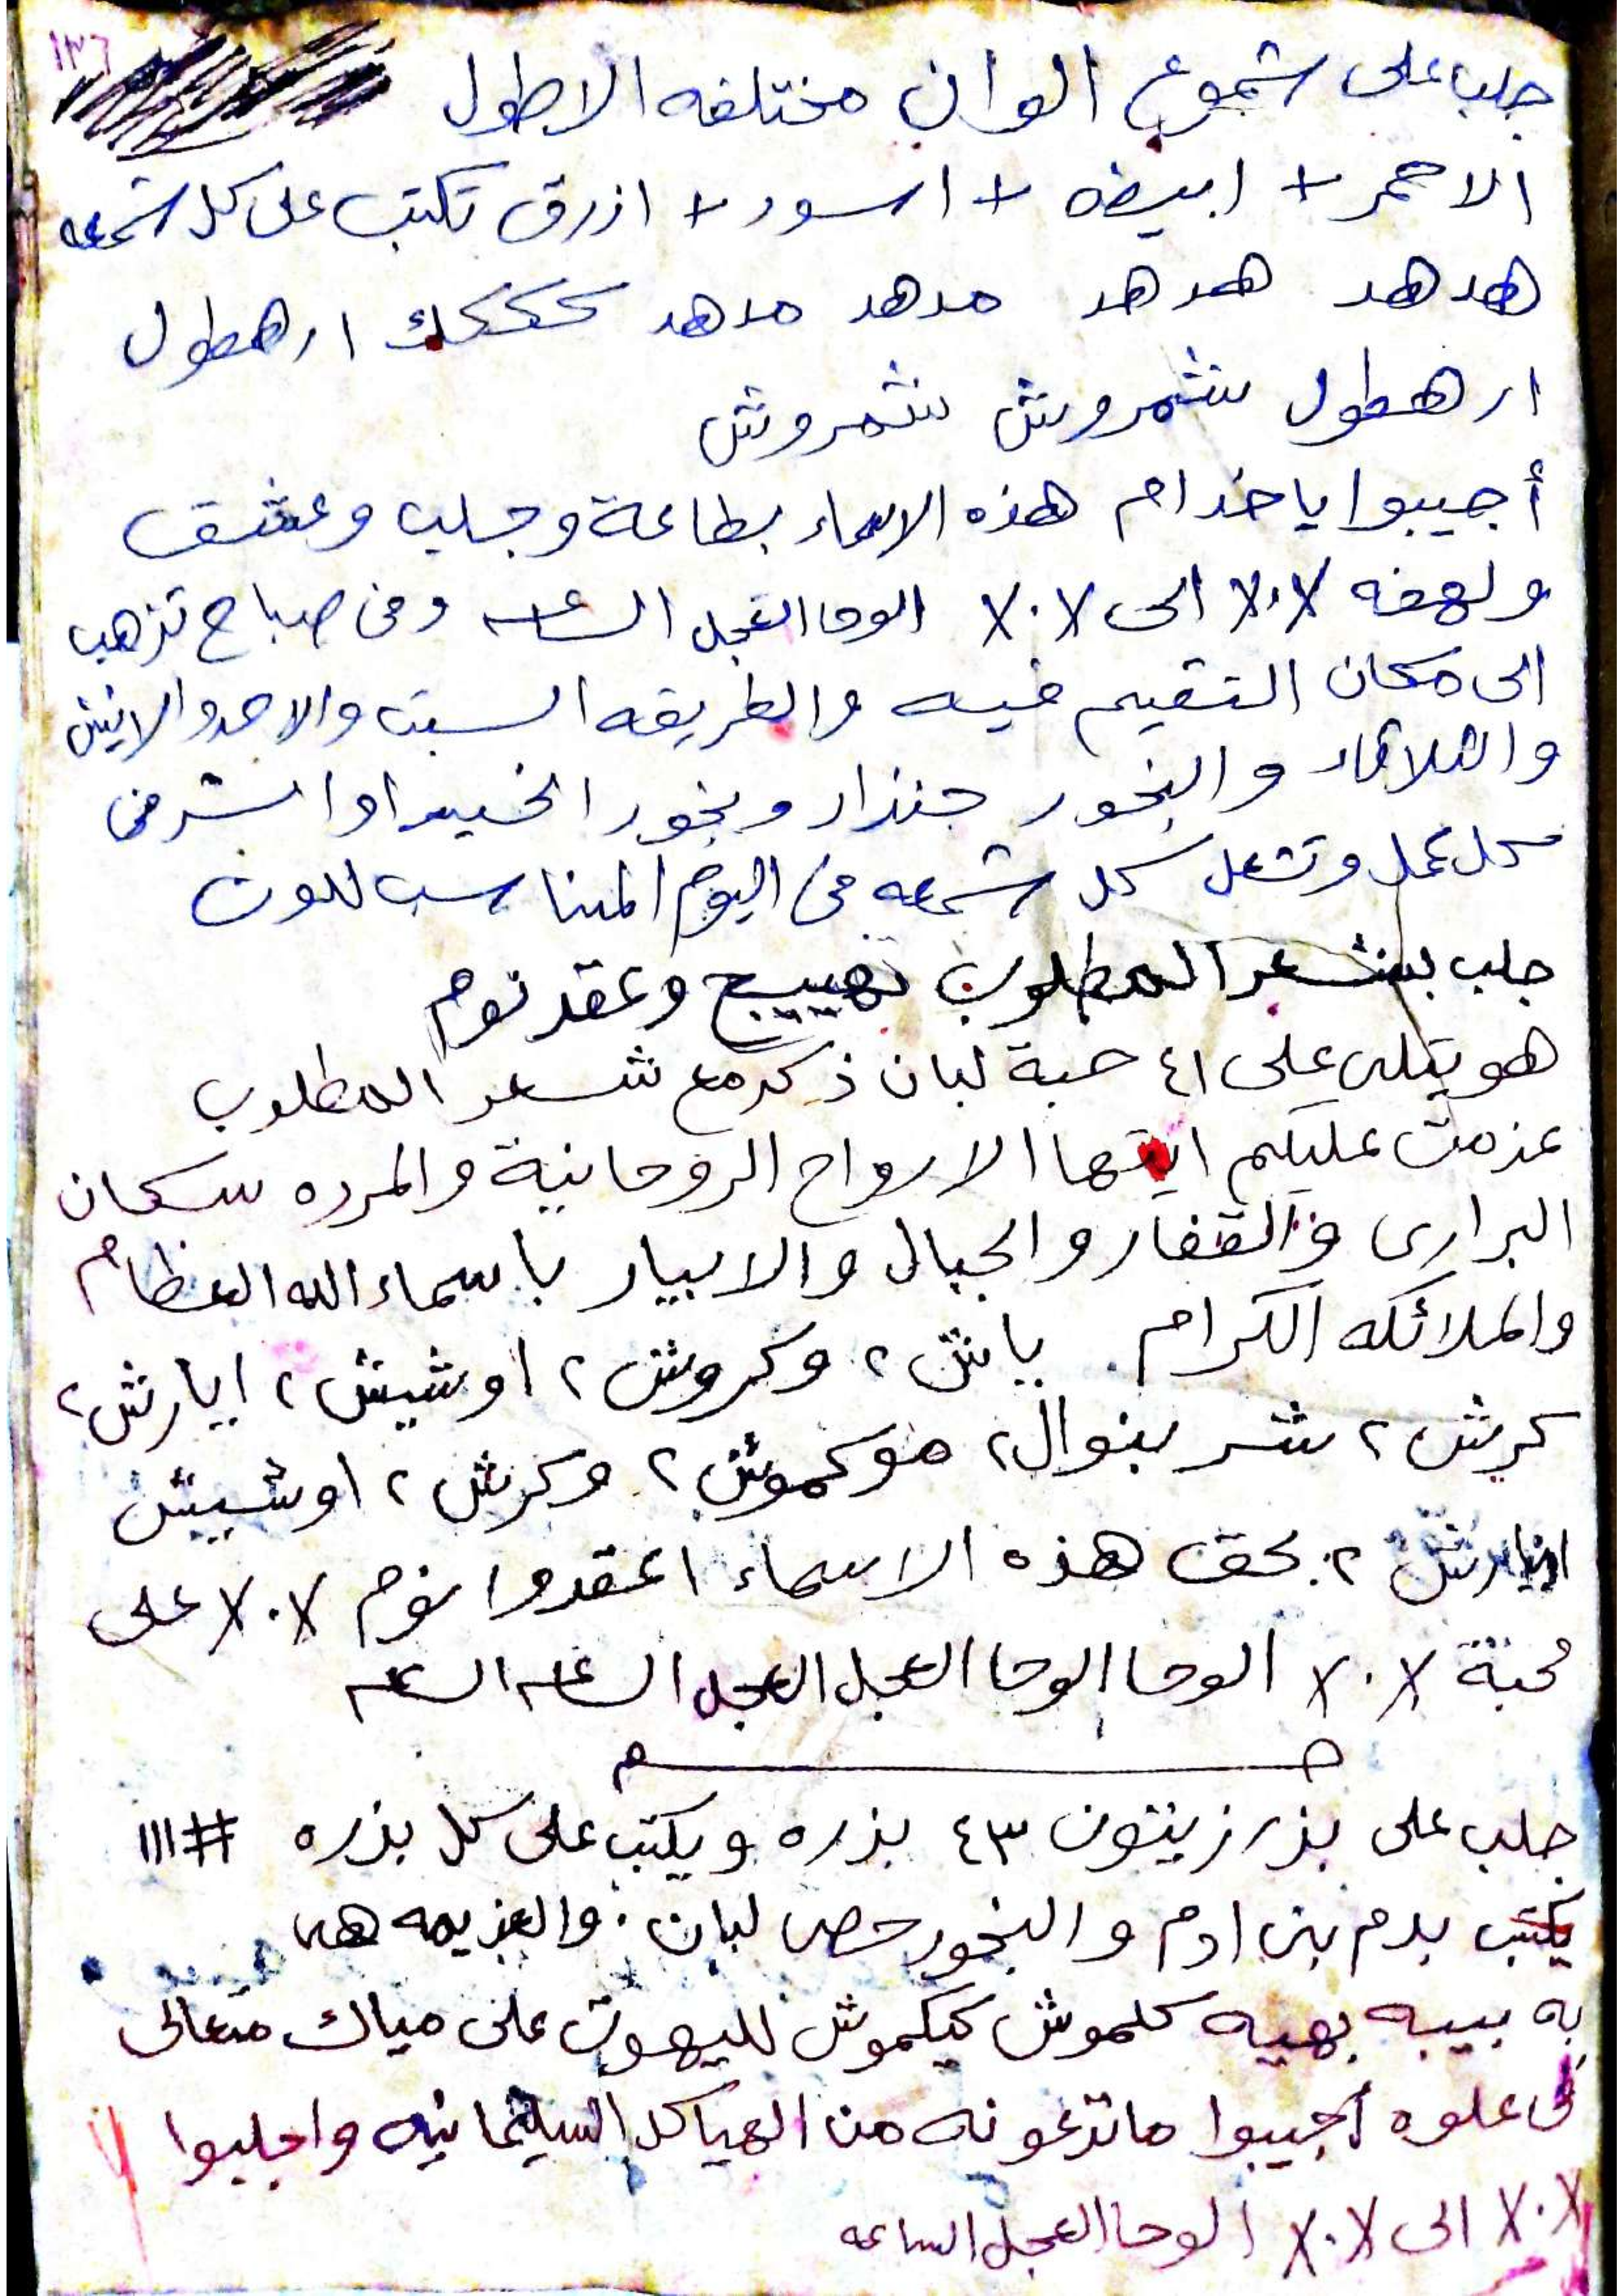 ١٣٦
جلب على شموع الوان مختلفه الاطول
الاحمر + ابيض + اسود + ازرق تكتب على كل شمعه
هدهد هدهد مدهد مدهد ارهطول
ارهطول شمروش شمروش
أجيبوا يا خدام هذه الاسماء بطاعة وجلب وعشق
ولهفه الى الوحا العجل الساعه وفى صباح تذهب
الى مكان التقيم فيه والطريقه السبت والاحد والاثنين
والثلاثاء والبخور جنزار وبخور
كل عمل وتشعل كل شمعه فى اليوم المناسب للون
جلب بشعر المطلوب تهييج وعقد نوم
هو يتلى على ٤١ حبة لبان ذكر مع شعر المطلوب
عزمت عليكم ايتها الارواح الروحانية والمرده سكان
البرارى والقفار والجبال والابيار باسماء الله العظام
والملائكه الكرام. ياش ٢ وكروش ٢ اوشيش ٢ ايارش ٢
كريش ٢ شر بنوال ٢ موكموش ٢ وكرش ٢ اوشيش
ايارش ٢. بحق هذه الاسماء اعقدوا نوم ٧٠٧ على
محبة ٧٠٧ الوحا الوحا العجل العجل الساعه الساعه
جلب على بذر زيتون ٤٣ بذره ويكتب على كل بذره # ١١١
يكتب بدم بنى ادم والبخور حصى لبان. والعزيمه هى
به بيبه بهيه كلموش كيكموش لليهوت على مياك متعالى
فى علوه أجيبوا ما تدعونه من الهياكل السليمانيه واجلبوا
٧٠٧ الى ٧٠٧ الوحا العجل الساعه